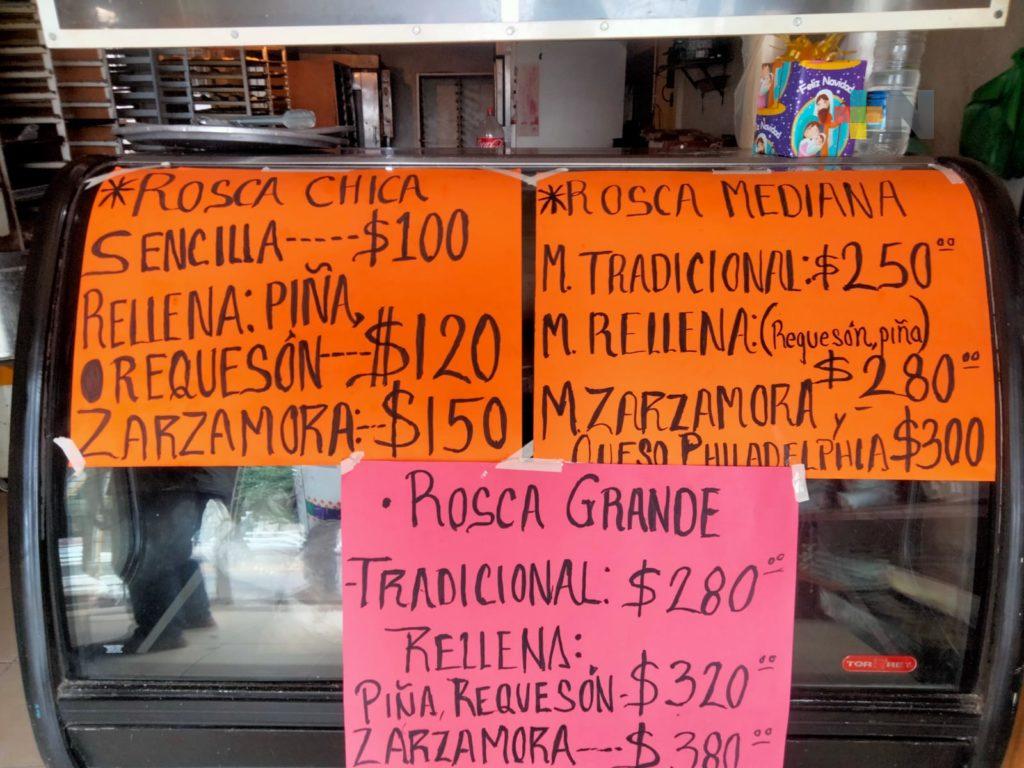 *ROSCA CHICA
SENCILLA-----$100
RELLENA: PIÑA,
REQUESÓN----$120
ZARZAMORA:--$150
*ROSCA MEDIANA
M. TRADICIONAL:$250°°
M. RELLENA:(Requesón, piña)
$280°°
M. ZARZAMORA y
QUESO PHILADELPHIA $300
• ROSCA GRANDE
-TRADICIONAL: $280°°
RELLENA:
PIÑA, REQUESÓN-$320°°
ZARZAMORA----$380°°
Feliz Navidad
Navidad
TORREY